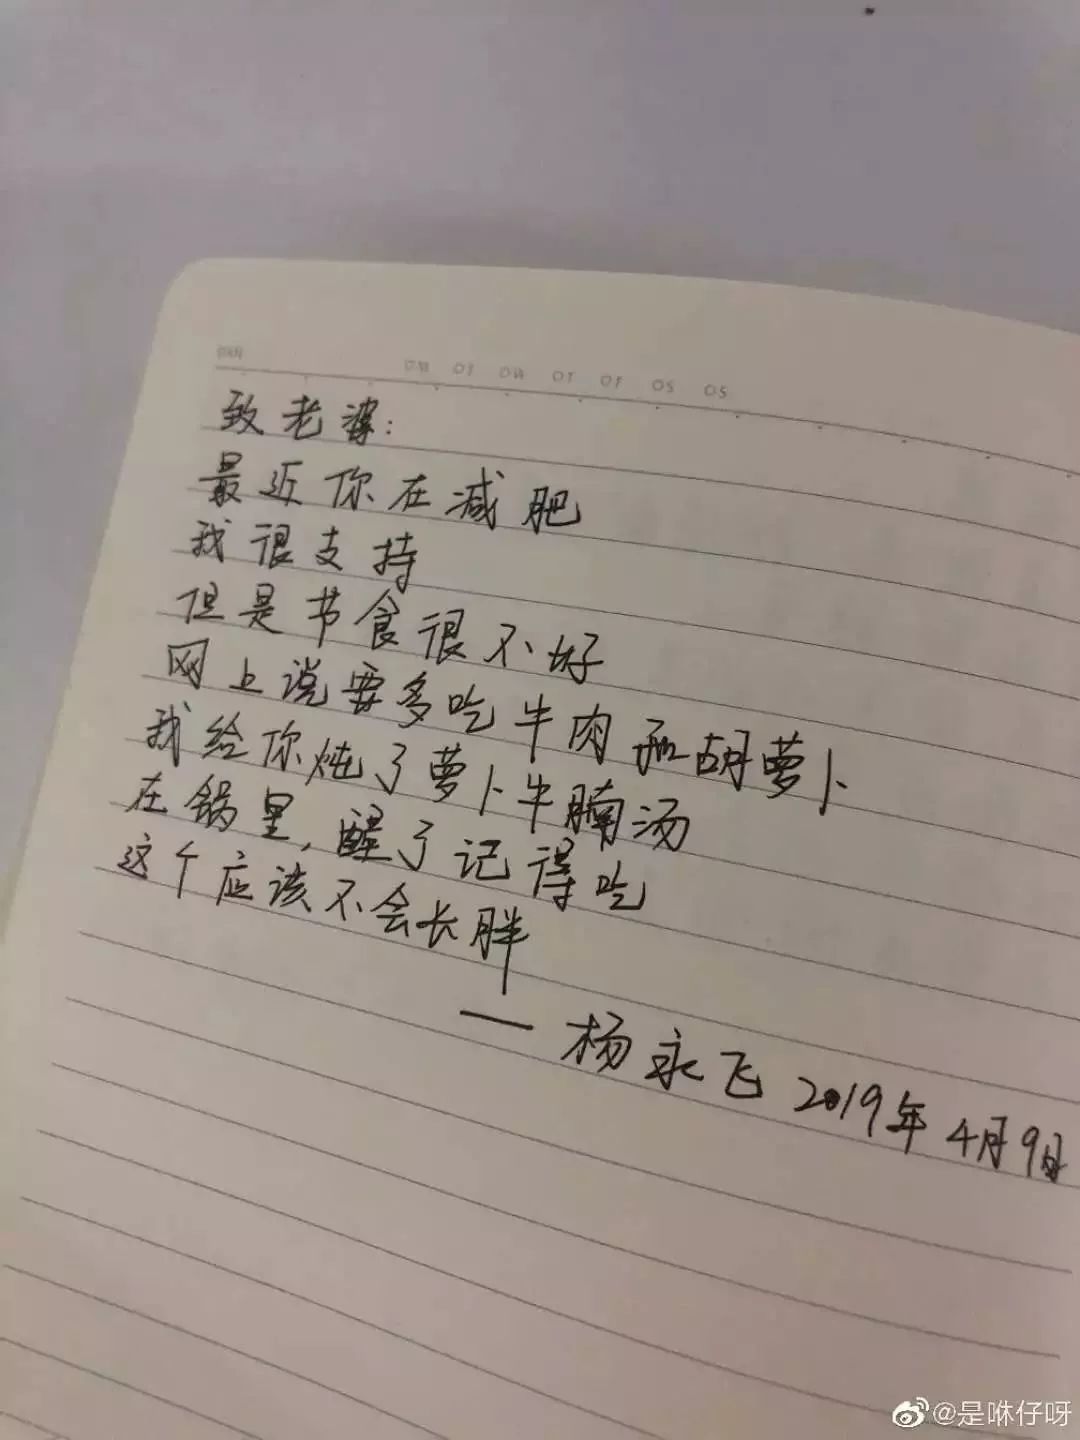 致老婆：
最近你在减肥
我很支持
但是节食很不好
网上说要多吃牛肉和胡萝卜
我给你炖了萝卜牛腩汤
在锅里，醒了记得吃
这个应该不会长胖
— 杨永飞 2019年4月9日
@是咻仔呀